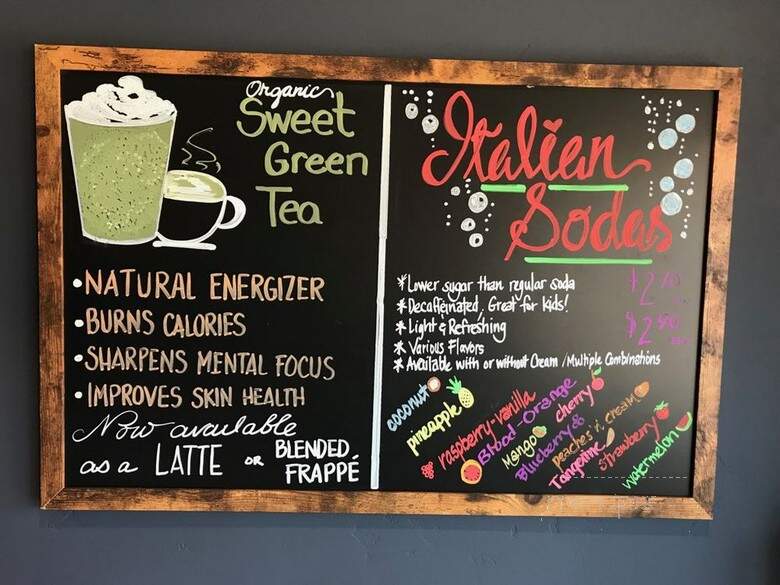 Organic
Sweet
Green
Tea
• NATURAL ENERGIZER
• BURNS CALORIES
• SHARPENS MENTAL FOCUS
• IMPROVES SKIN HEALTH
Now available
as a LATTE OR BLENDED FRAPPÉ
Italian
Sodas
* Lower sugar than regular soda
* Decaffeinated, Great for kids!
* Light & Refreshing
* Various Flavors
* Available with or without Cream / Multiple Combinations
coconut
pineapple
raspberry-vanilla
Blood-Orange
Mango
cherry
Blueberry &
Tangerine
peaches n' cream
strawberry
watermelon